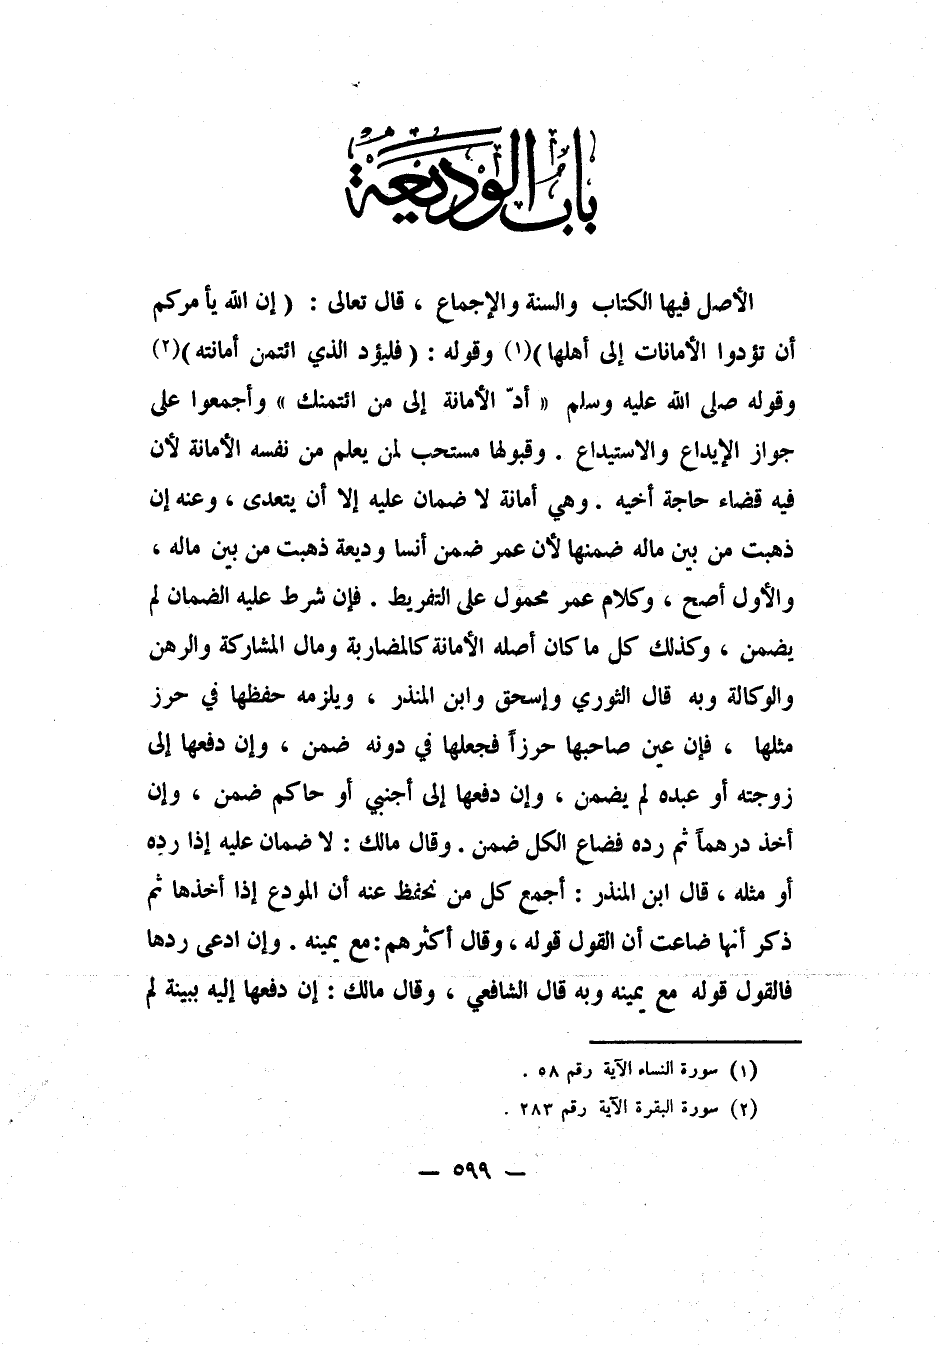 باب الوديعة
الأصل فيها الكتاب والسنة والإجماع ، قال تعالى : ( إن الله يأمركم
أن تؤدوا الأمانات إلى أهلها )(١) وقوله : ( فليؤد الذي ائتمن أمانته )(٢)
وقوله صلى الله عليه وسلم « أدّ الأمانة إلى من ائتمنك » وأجمعوا على
جواز الإيداع والاستيداع . وقبولها مستحب لمن يعلم من نفسه الأمانة لأن
فيه قضاء حاجة أخيه . وهي أمانة لا ضمان عليه إلا أن يتعدى ، وعنه إن
ذهبت من بين ماله ضمنها لأن عمر ضمن أنسا وديعة ذهبت من بين ماله ،
والأول أصح ، وكلام عمر محمول على التفريط . فإن شرط عليه الضمان لم
يضمن ، وكذلك كل ما كان أصله الأمانة كالمضاربة ومال المشاركة والرهن
والوكالة وبه قال الثوري وإسحق وابن المنذر ، ويلزمه حفظها في حرز
مثلها ، فإن عين صاحبها حرزاً فجعلها في دونه ضمن ، وإن دفعها إلى
زوجته أو عبده لم يضمن ، وإن دفعها إلى أجنبي أو حاكم ضمن ، وإن
أخذ درهماً ثم رده فضاع الكل ضمن . وقال مالك : لا ضمان عليه إذا رده
أو مثله ، قال ابن المنذر : أجمع كل من نحفظ عنه أن المودع إذا أخذها ثم
ذكر أنها ضاعت أن القول قوله ، وقال أكثرهم : مع يمينه . وإن ادعى ردها
فالقول قوله مع يمينه وبه قال الشافعي ، وقال مالك : إن دفعها إليه ببينة لم
(١) سورة النساء الآية رقم ٥٨ .
(٢) سورة البقرة الآية رقم ٢٨٣ .
— ٥٩٩ —